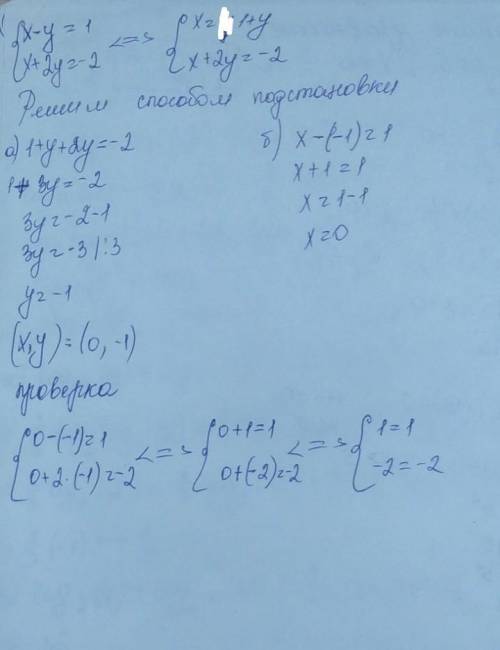 {x-y=1 <=> {x=1+y
{x+2y=-2 {x+2y=-2
Решим способом подстановки
а) 1+y+2y=-2
1+3y=-2
3y=-2-1
3y=-3 |:3
y=-1
б) x-(-1)=1
x+1=1
x=1-1
x=0
(x,y)=(0,-1)
проверка
{0-(-1)=1 <=> {0+1=1 <=> {1=1
{0+2·(-1)=-2 {0+(-2)=-2 {-2=-2